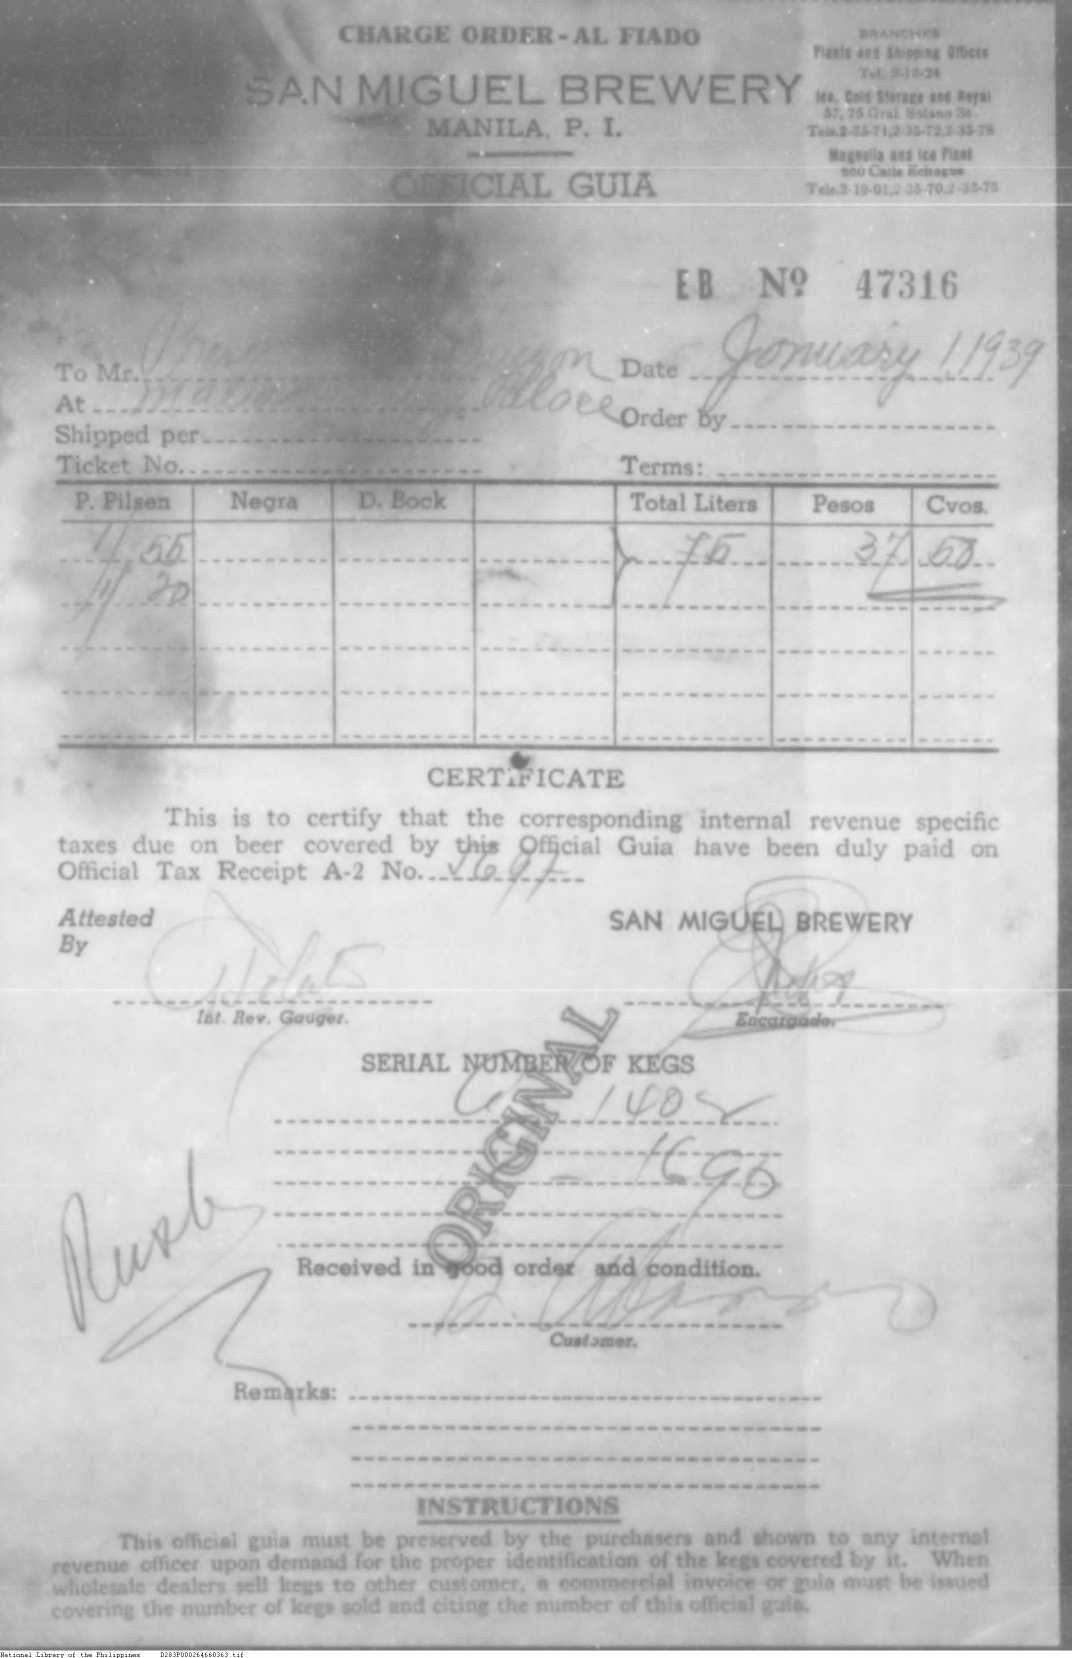 CHARGE ORDER - AL FIADO
SAN MIGUEL BREWERY
MANILA, P. I.
OFFICIAL GUIA
BRANCHES
Plants and Shipping Offices
Tel. 2-12-24
Ice, Cold Storage and Royal
57, 75 Gral. Solano St.
Magnolia and Ice Plant
Calle Echague
EB Nº 47316
To Mr.
Date January 1 1939
At
Order by
Shipped per
Ticket No.
Terms:
P. Pilsen Negra D. Bock Total Liters Pesos Cvos.
1/ 55 75 37 50
1/ 20
CERTIFICATE
This is to certify that the corresponding internal revenue specific
taxes due on beer covered by this Official Guia have been duly paid on
Official Tax Receipt A-2 No.
Attested
By
SAN MIGUEL BREWERY
Int. Rev. Gauger.
Encargado.
SERIAL NUMBER OF KEGS
ORIGINAL
1402
1696
Rush
Received in good order and condition.
Customer.
Remarks:
INSTRUCTIONS
This official guia must be preserved by the purchasers and shown to any internal
revenue officer upon demand for the proper identification of the kegs covered by it. When
wholesale dealers sell kegs to other customer, a commercial invoice or guia must be issued
covering the number of kegs sold and citing the number of this official guia.
National Library of the Philippines D283P000264660363.tif